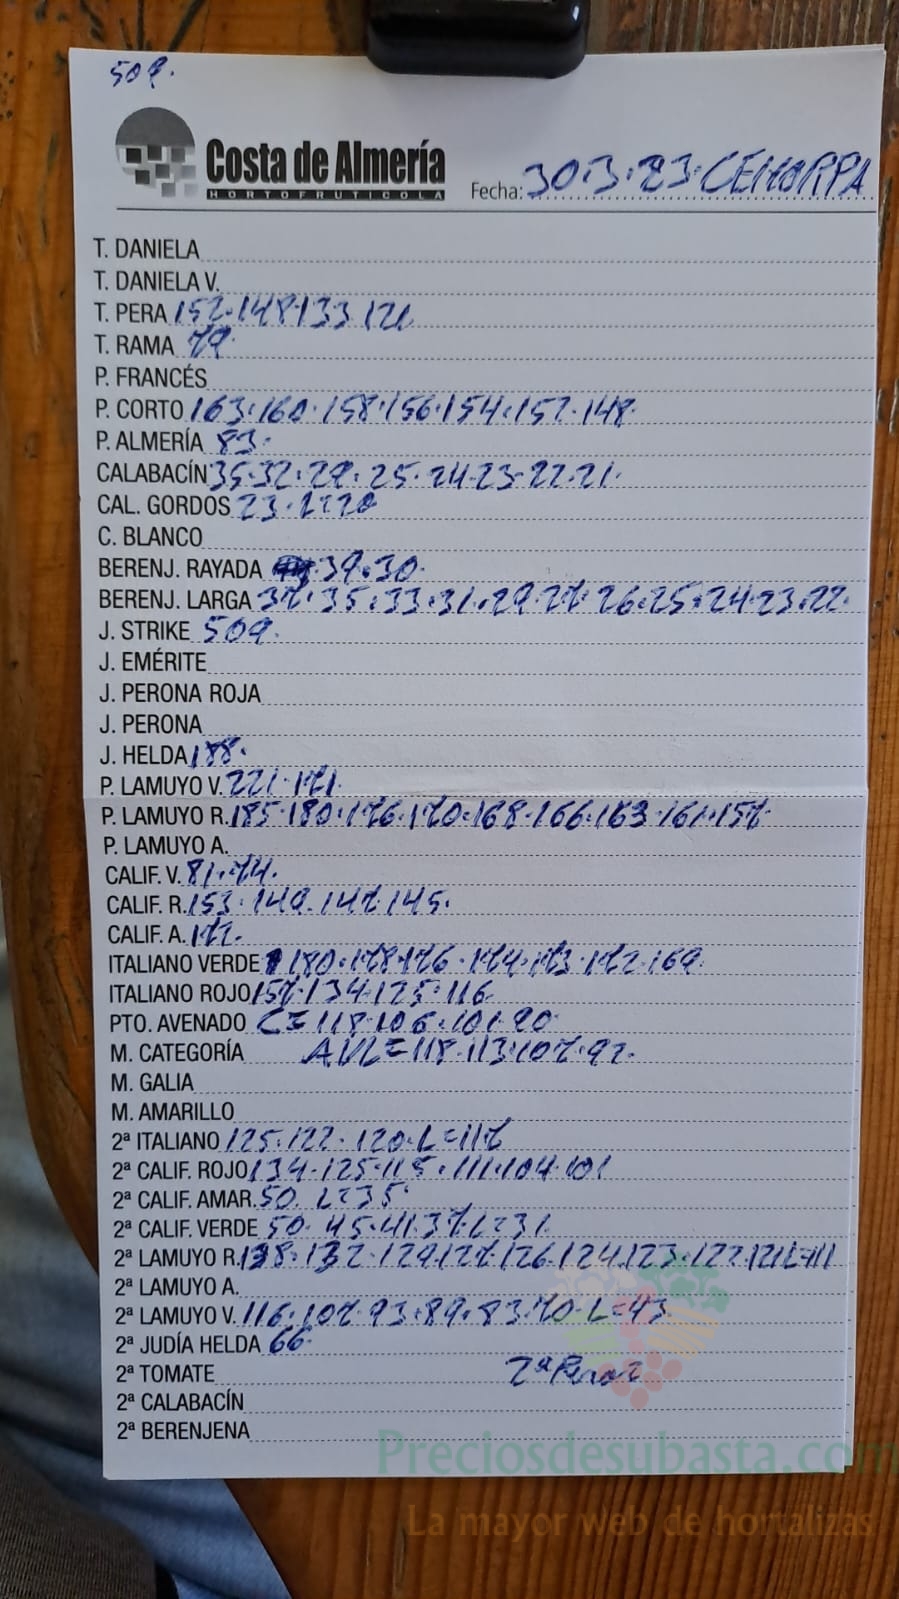 509.
Costa de Almería
HORTOFRUTICOLA
Fecha: 30.3.23. CEHORPA
T. DANIELA
T. DANIELA V.
T. PERA 152.148.133 121
T. RAMA 79
P. FRANCÉS
P. CORTO 163.160.158.156.154.152.148.
P. ALMERÍA 83.
CALABACÍN 35.32.29.25.24.23.22.21.
CAL. GORDOS 23. L=20
C. BLANCO
BERENJ. RAYADA 39.30.
BERENJ. LARGA 37.35.33.31.29.27.26.25.24.23.22.
J. STRIKE 509.
J. EMÉRITE
J. PERONA ROJA
J. PERONA
J. HELDA 188.
P. LAMUYO V. 221.171.
P. LAMUYO R. 185.180.176.170.168.166.163.161.157.
P. LAMUYO A.
CALIF. V. 81.74.
CALIF. R. 153.149.147.145.
CALIF. A. 172.
ITALIANO VERDE 180.178.176.174.173.172.169.
ITALIANO ROJO 157.134.125.116
PTO. AVENADO C=118.106.101.90
M. CATEGORÍA AVL=118.113.107.92.
M. GALIA
M. AMARILLO
2ª ITALIANO 125.122.120.L=117
2ª CALIF. ROJO 134.125.115.111.104.101
2ª CALIF. AMAR. 50. L=35
2ª CALIF. VERDE 50.45.41.37.L=31.
2ª LAMUYO R. 138.132.129.127.126.124.123.122.121L=111
2ª LAMUYO A.
2ª LAMUYO V. 116.107.93.89.83.70.L=43.
2ª JUDÍA HELDA 66
2ª TOMATE 2ª
2ª CALABACÍN
2ª BERENJENA
Preciosdesubasta.com
La mayor web de hortalizas